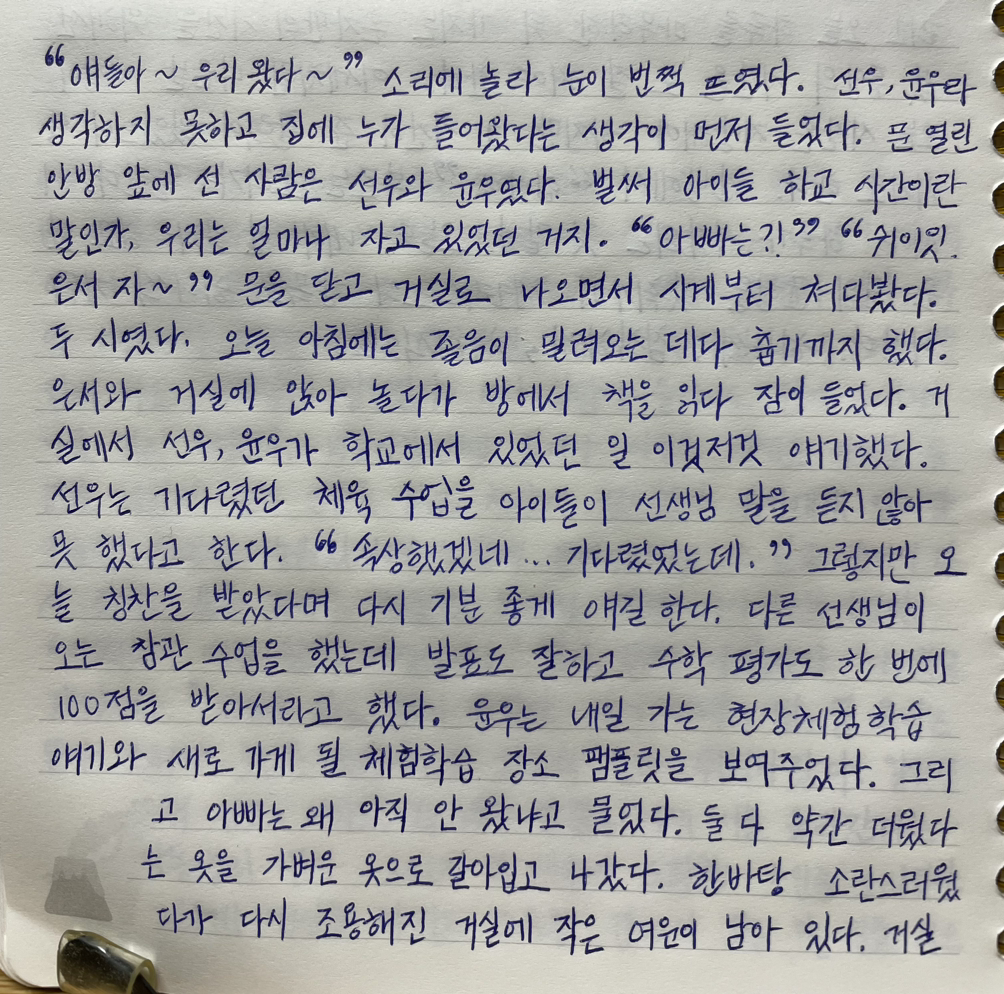 “얘들아~ 우리 왔다~” 소리에 놀라 눈이 번쩍 뜨였다. 선우, 윤우라
생각하지 못하고 집에 누가 들어왔다는 생각이 먼저 들었다. 문 열린
안방 앞에 선 사람은 선우와 윤우였다. 벌써 아이들 하교 시간이란
말인가, 우리는 얼마나 자고 있었던 거지. “아빠는?!” “쉬이잇.
은서 자~” 문을 닫고 거실로 나오면서 시계부터 쳐다봤다.
두 시였다. 오늘 아침에는 졸음이 밀려오는 데다 춥기까지 했다.
은서와 거실에 앉아 놀다가 방에서 책을 읽다 잠이 들었다. 거
실에서 선우, 윤우가 학교에서 있었던 일 이것저것 얘기했다.
선우는 기다렸던 체육 수업을 아이들이 선생님 말을 듣지 않아
못 했다고 한다. “속상했겠네... 기다렸었는데.” 그렇지만 오
늘 칭찬을 받았다며 다시 기분 좋게 얘길 한다. 다른 선생님이
오는 참관 수업을 했는데 발표도 잘하고 수학 평가도 한 번에
100점을 받아서라고 했다. 윤우는 내일 가는 현장체험학습
얘기와 새로 가게 될 체험학습 장소 팸플릿을 보여주었다. 그리
고 아빠는 왜 아직 안 왔냐고 물었다. 둘 다 약간 더웠다
는 옷을 가벼운 옷으로 갈아입고 나갔다. 한바탕 소란스러웠
다가 다시 조용해진 거실에 작은 여운이 남아 있다. 거실